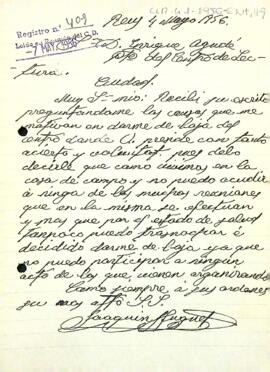 Reus 4 Mayo 1956.
Registro nº 409
Leída y Aprobada C.D.
7 MAY 1956
D. Enrique Aguadé
del Centro de Lec-
tura.
Ciudad.
Muy Sr. mio: Recibí su escrito
preguntandome las causas que me
motivan en darme de baja del
centro donde V. preside con tanto
acierto y voluntad, pues debo
decirle que como vivimos en la
casa de campo y no puedo acudir
á ninguna de las muchas reuniones
que en la misma se efectuan
y mas que por el estado de salud
tampoco puedo trasnochar é
decidido darme de baja ya que
no puedo participar a ningún
acto de los que vienen organizando
Como siempre á sus ordenes
su muy affº S.S.
Joaquin Huguet